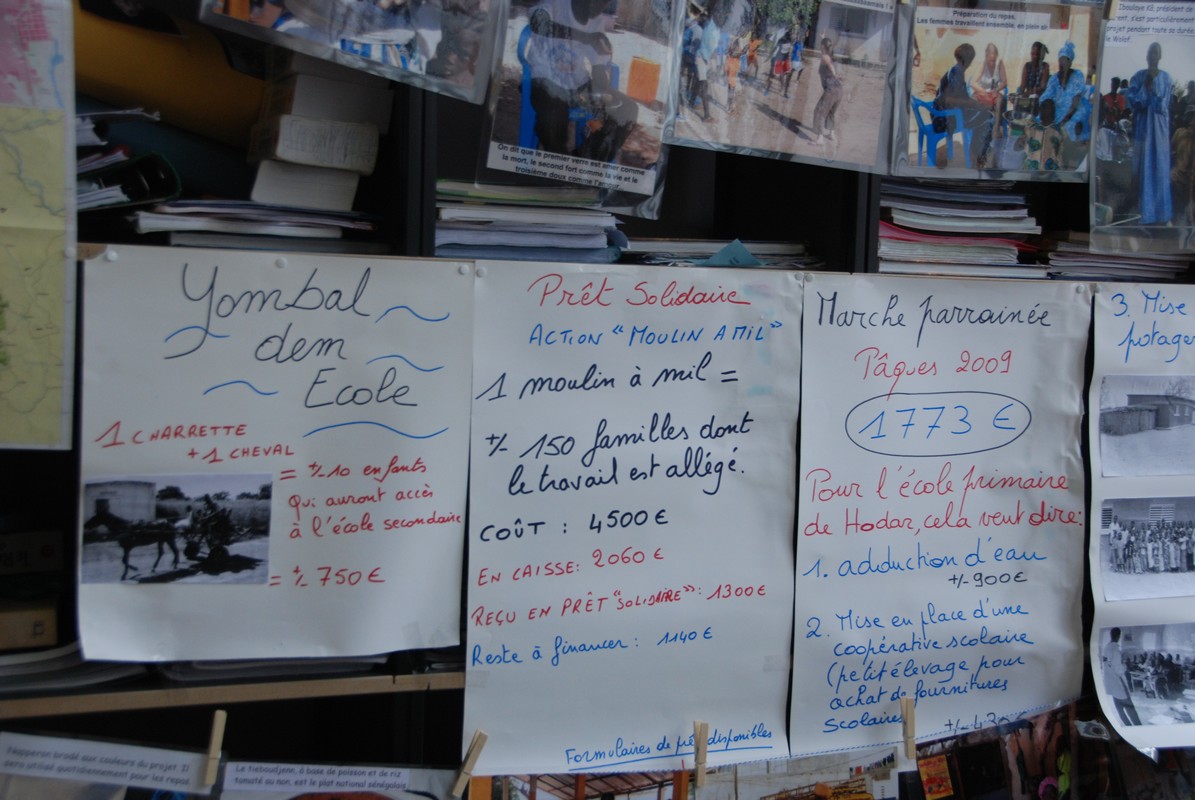 On dit que le premier verre est amer comme
la mort, le second fort comme la vie et le
troisième doux comme l'amour.
Préparation du repas.
Les femmes travaillent ensemble, en plein air
projet pendant toute sa durée
le Wolof.
Yombal
dem
Ecole
1 CHARRETTE
+1 CHEVAL
= +/- 10 enfants
qui auront accès
à l'école secondaire
= +/- 750 €
Prêt Solidaire
ACTION "MOULIN A MIL"
1 moulin à mil =
+/- 150 familles dont
le travail est allégé.
COÛT : 4500 €
EN CAISSE: 2060 €
REÇU EN PRÊT "SOLIDAIRE": 1300 €
Reste à financer : 1140 €
Formulaires de prêt disponibles
Marche parrainée
Pâques 2009
1773 €
Pour l'école primaire
de Hodar, cela veut dire:
1. adduction d'eau
+/- 900 €
2. Mise en place d'une
coopérative scolaire
(petit élevage pour
achat de fournitures
scolaires
3. Mise
potager
Pépperon brodé aux couleurs du projet. Il
sera utilisé quotidiennement pour les repas
Le tieboudjenn, à base de poisson et de riz
tomaté ou non, est le plat national sénégalais.